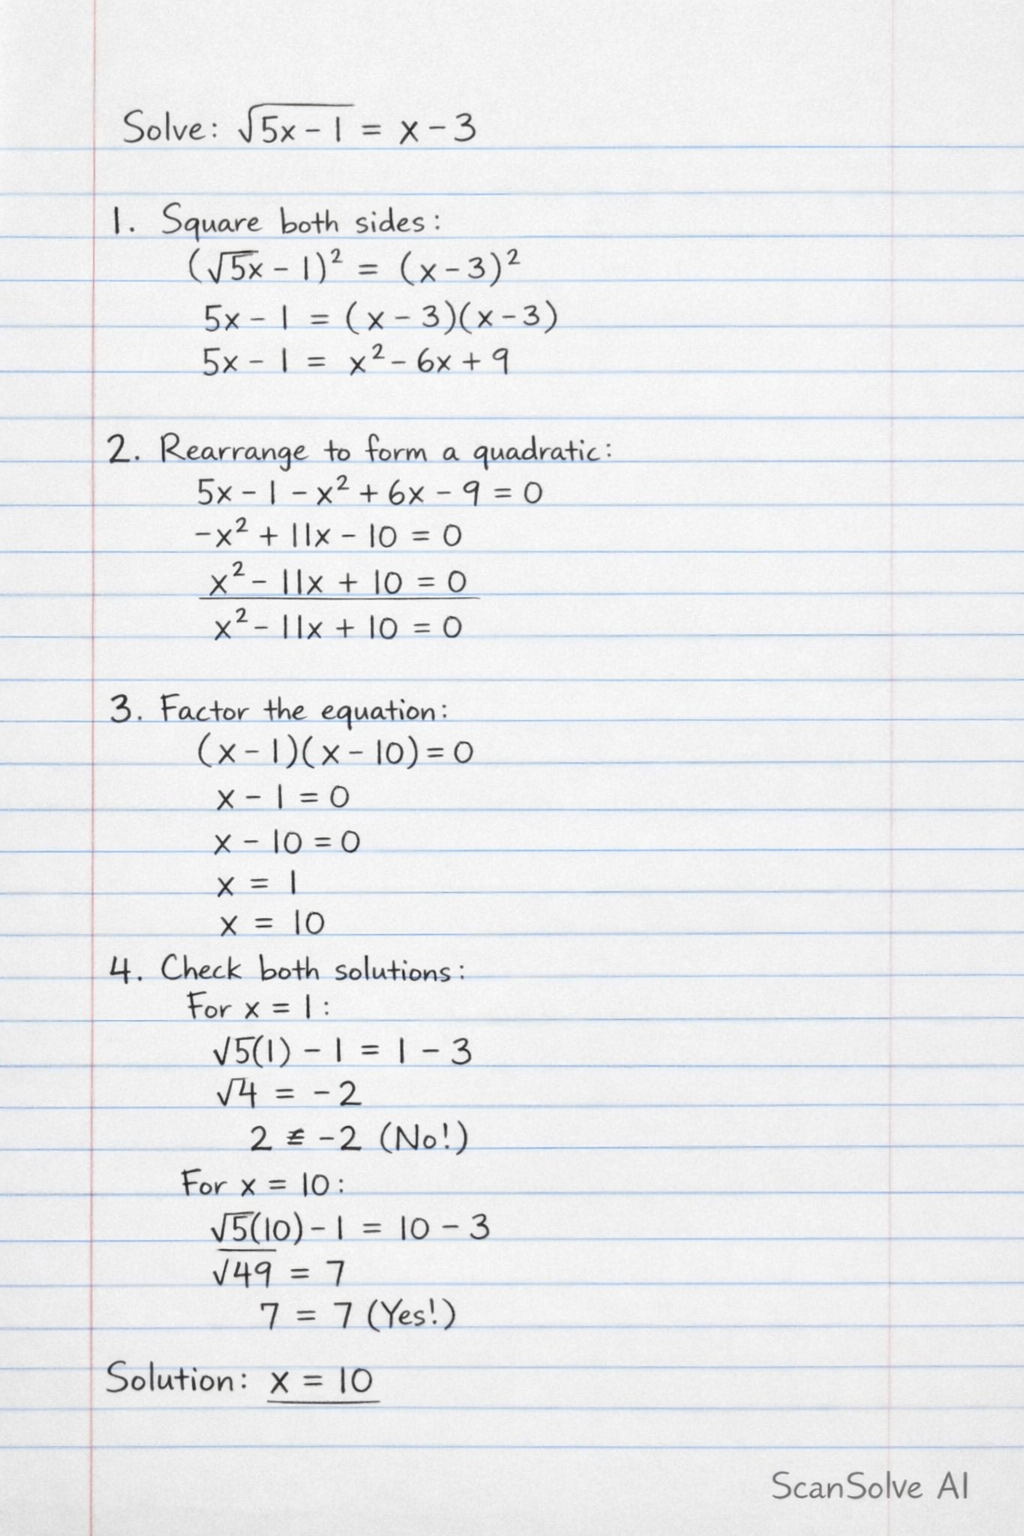 Solve: √5x − 1 = x − 3
1. Square both sides:
(√5x − 1)² = (x − 3)²
5x − 1 = (x − 3)(x − 3)
5x − 1 = x² − 6x + 9
2. Rearrange to form a quadratic:
5x − 1 − x² + 6x − 9 = 0
−x² + 11x − 10 = 0
x² − 11x + 10 = 0
x² − 11x + 10 = 0
3. Factor the equation:
(x − 1)(x − 10) = 0
x − 1 = 0
x − 10 = 0
x = 1
x = 10
4. Check both solutions:
For x = 1:
√5(1) − 1 = 1 − 3
√4 = −2
2 ≠ −2 (No!)
For x = 10:
√5(10) − 1 = 10 − 3
√49 = 7
7 = 7 (Yes!)
Solution: x = 10
ScanSolve AI